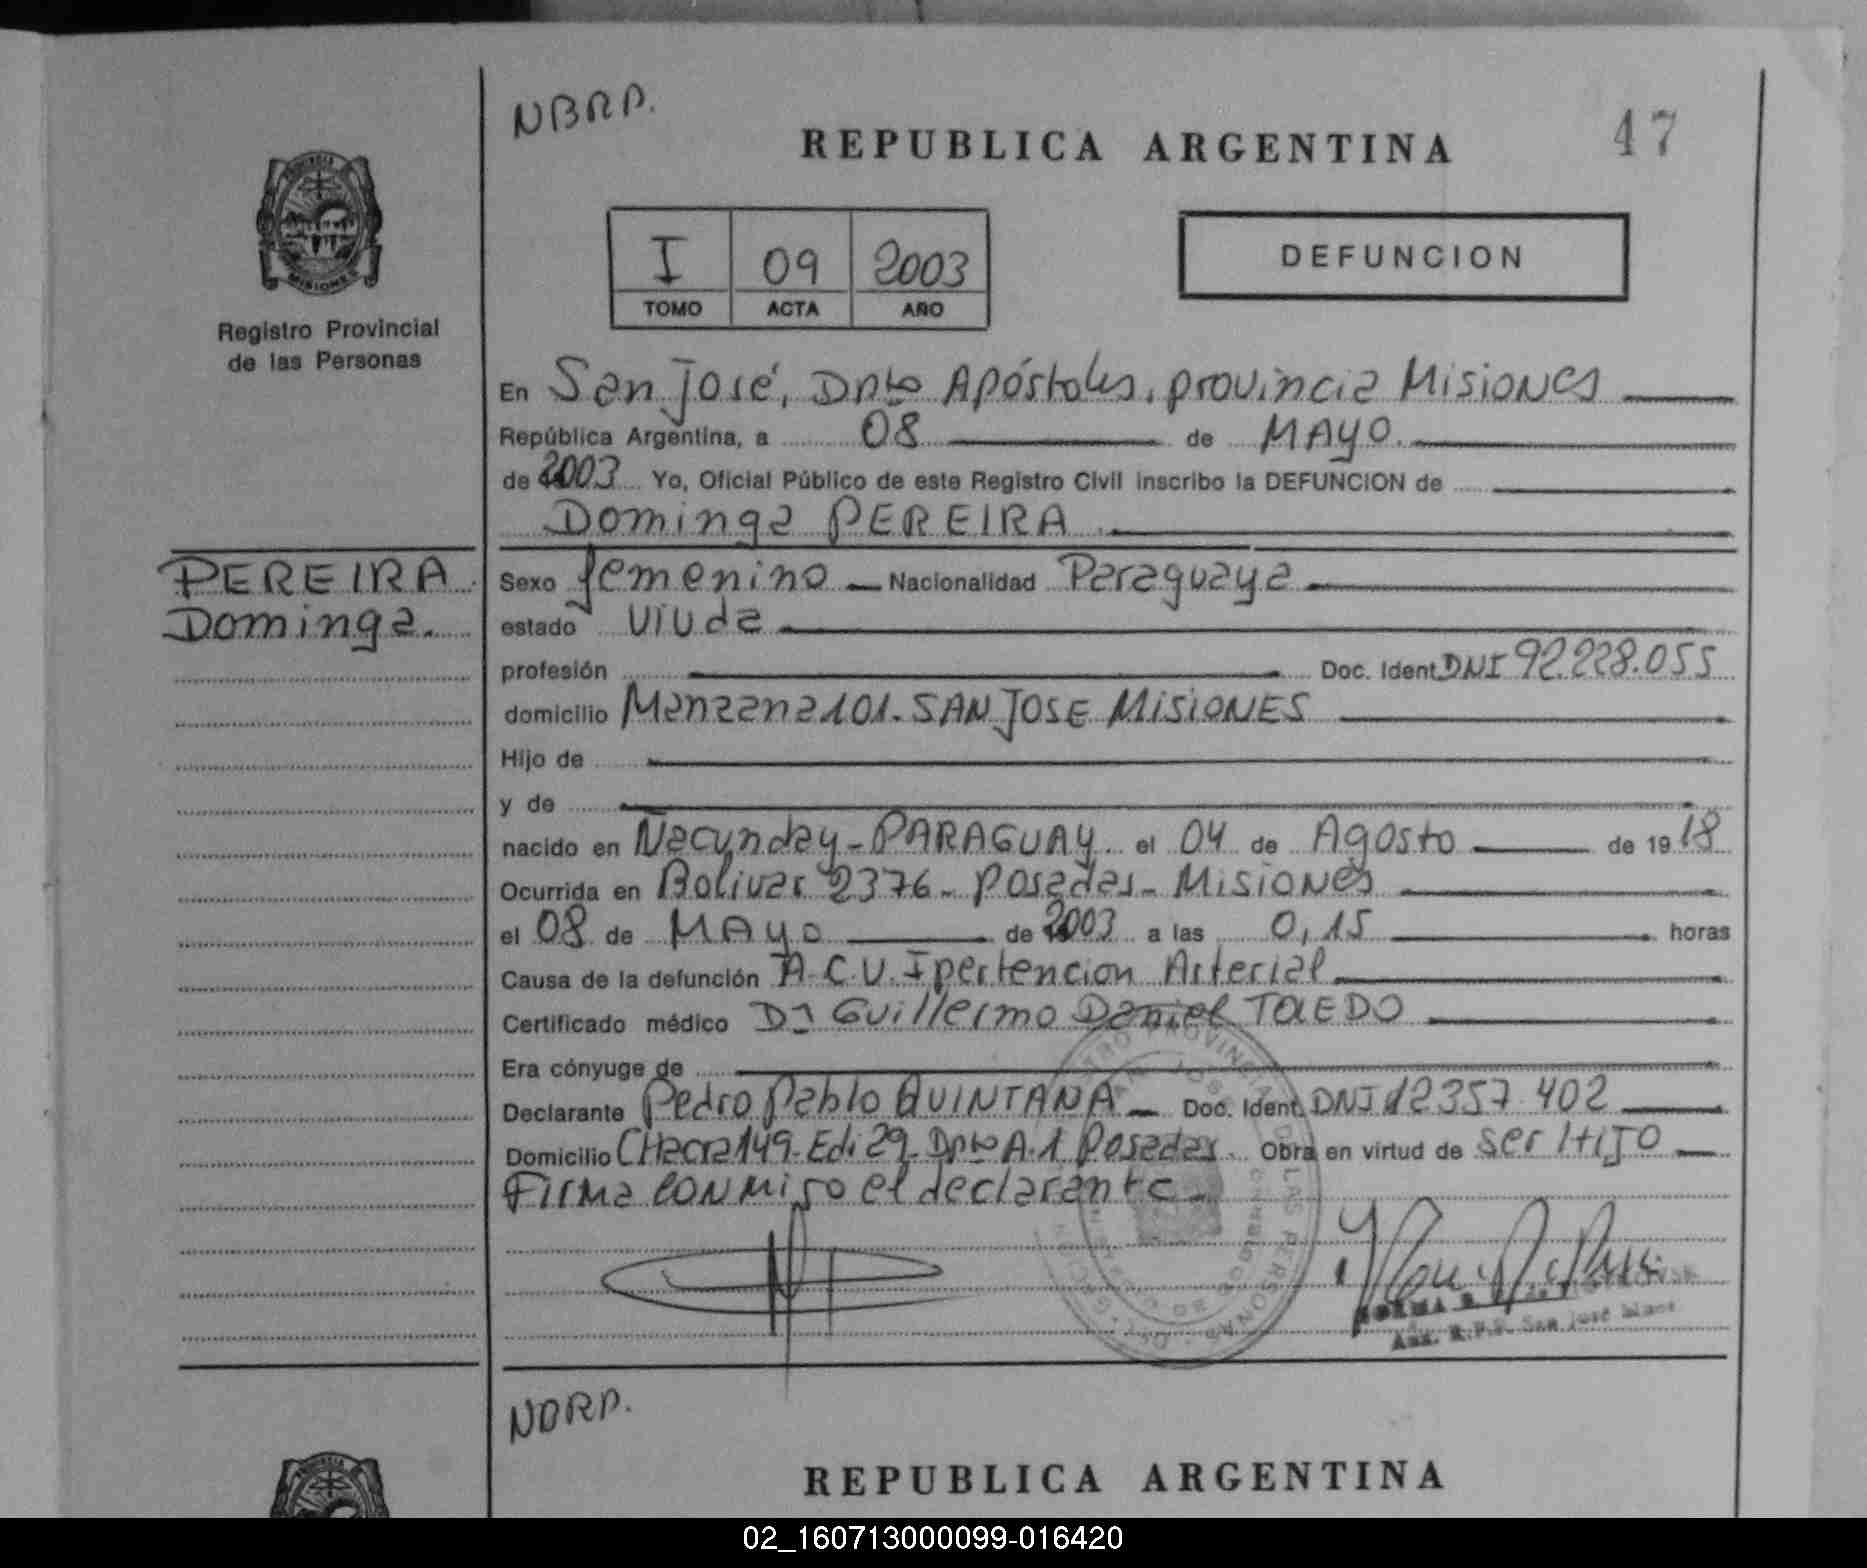 NBRP.
REPUBLICA ARGENTINA
47
MISIONES
Registro Provincial
de las Personas
I 09 2003
TOMO ACTA AÑO
DEFUNCION
En San José, Dpto Apóstoles, provincia Misiones
República Argentina, a 08 de MAYO.
de 2003 Yo, Oficial Público de este Registro Civil inscribo la DEFUNCION de
Dominga PEREIRA
PEREIRA
Dominga.
Sexo femenino Nacionalidad Paraguaya
estado viuda
profesión Doc. Ident. DNI 92.228.055
domicilio Manzana 101. SAN JOSE MISIONES
Hijo de
y de
nacido en Ñacunday - PARAGUAY el 04 de Agosto de 1918
Ocurrida en Bolivar 2376 - Posadas - Misiones
el 08 de MAYO de 2003 a las 0,15 horas
Causa de la defunción A.C.V. Ipertencion Arterial
Certificado médico Dr Guillermo Daniel TOLEDO
Era cónyuge de
Declarante Pedro Pablo QUINTANA Doc. Ident. DNI 12357.402
Domicilio CHacra 149 - Edi 29 - Dpto A.1 Posadas Obra en virtud de ser HIJO
Firma conmigo el declarante.
Aux. R.P.P. San José Mnes
NBRP.
REPUBLICA ARGENTINA
02_160713000099-016420